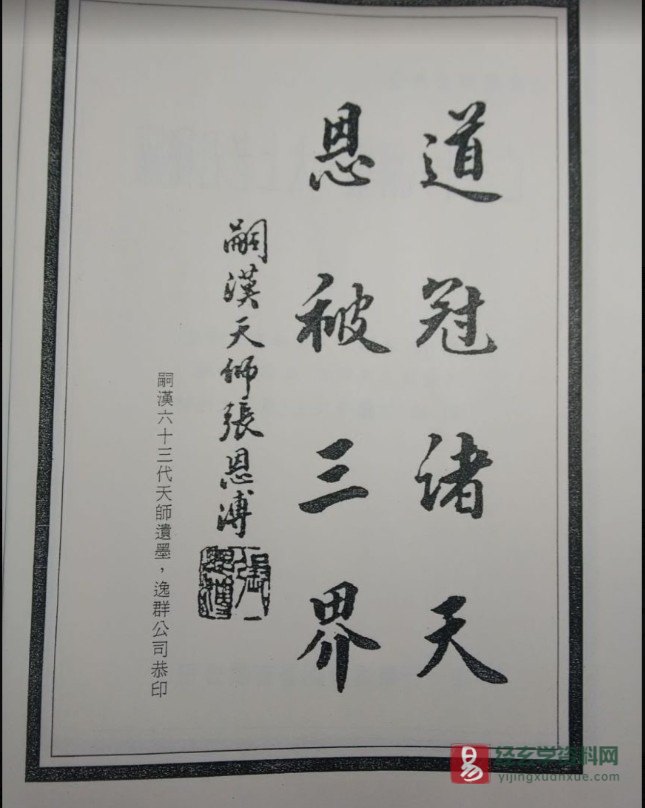 道冠诸天
恩被三界
嗣漢天师張恩溥
嗣漢六十三代天師遺墨，逸群公司恭印
易
经玄学资料网
yijingxuanxue.com